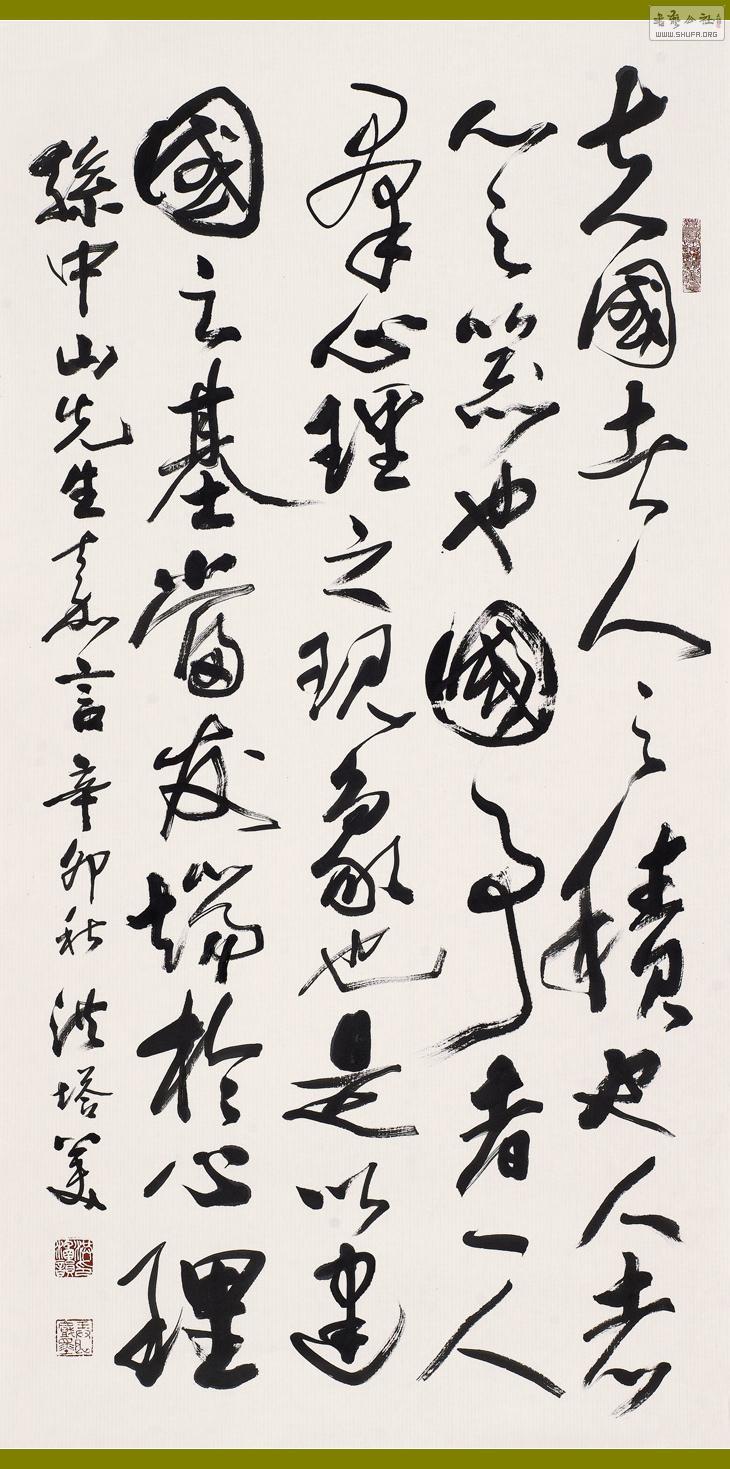 書藝公社
WWW.SHUFA.ORG
夫國者人之積也人者
心之器也國事者一人
羣心理之現象也是以建
國之基當发端於心理
孫中山先生嘉言辛卯秋洪塔美